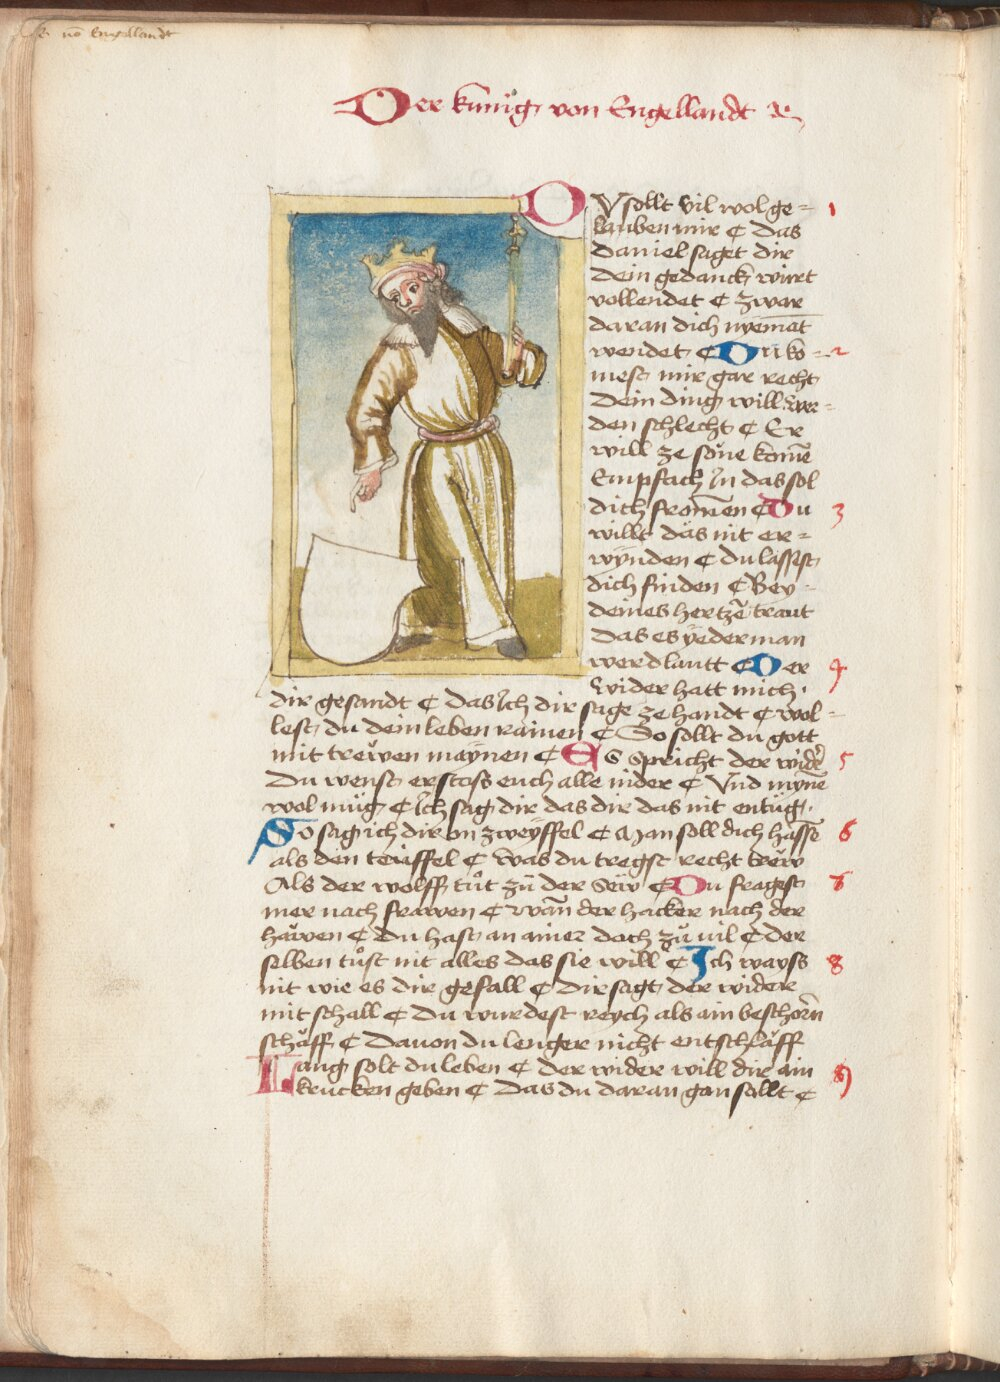 võ Engellandt
Der künig von Engellandt ꝛc
DV sollt vil wol ge= 1
lauben mir ₵ Das
Daniel saget dir
Dein gedanck wirt
vollendet ₵ zwar
daran dich nyemāt
wendet ₵ Du ko= 2
mest mir gar recht
Dein ding will wer=
den schlecht ₵ Er
will ze sone komē
Empfach In das sol
dich from̄en ₵ Du 3
willt das nit er=
wynden ₵ du lassest
dich finden ₵ Bey
deines hertzē traut
Das es yederman
werd lautt ₵ Der 4
wider hatt mich
dir gesandt ₵ das Ich dir sage ze handt ₵ wol=
lest du dein leben rainen ₵ So sollt du gott
mit trewen maynen ₵ ES spricht der wider 5
Du wenst er stoss euch alle nider ₵ Vnd mynē
wol müg ₵ Ich sag dir das dir das nit entüg.
So sag ich dir on zweyffel ₵ Man soll dich hassē 6
als den teuffel ₵ was du tregst recht trew
Als der wolff tůt zů der Sew ₵ Du fragest 7
mer nach frawen ₵ wañ der hacker nach der
hawen ₵ Du hast an ainer doch zů vil ₵ der
selben tůst nit alles das sie will ₵ Ich wayss 8
nit wie es dir gefall ₵ dir sagt der wider
mit schall ₵ Du wurdest reych als ain beschorn
schäff ₵ Dauon du lenger nicht entschläff
Lang solt du leben ₵ der wider will dir ain 9
krucken geben ₵ Das du daran gan sollt ₵